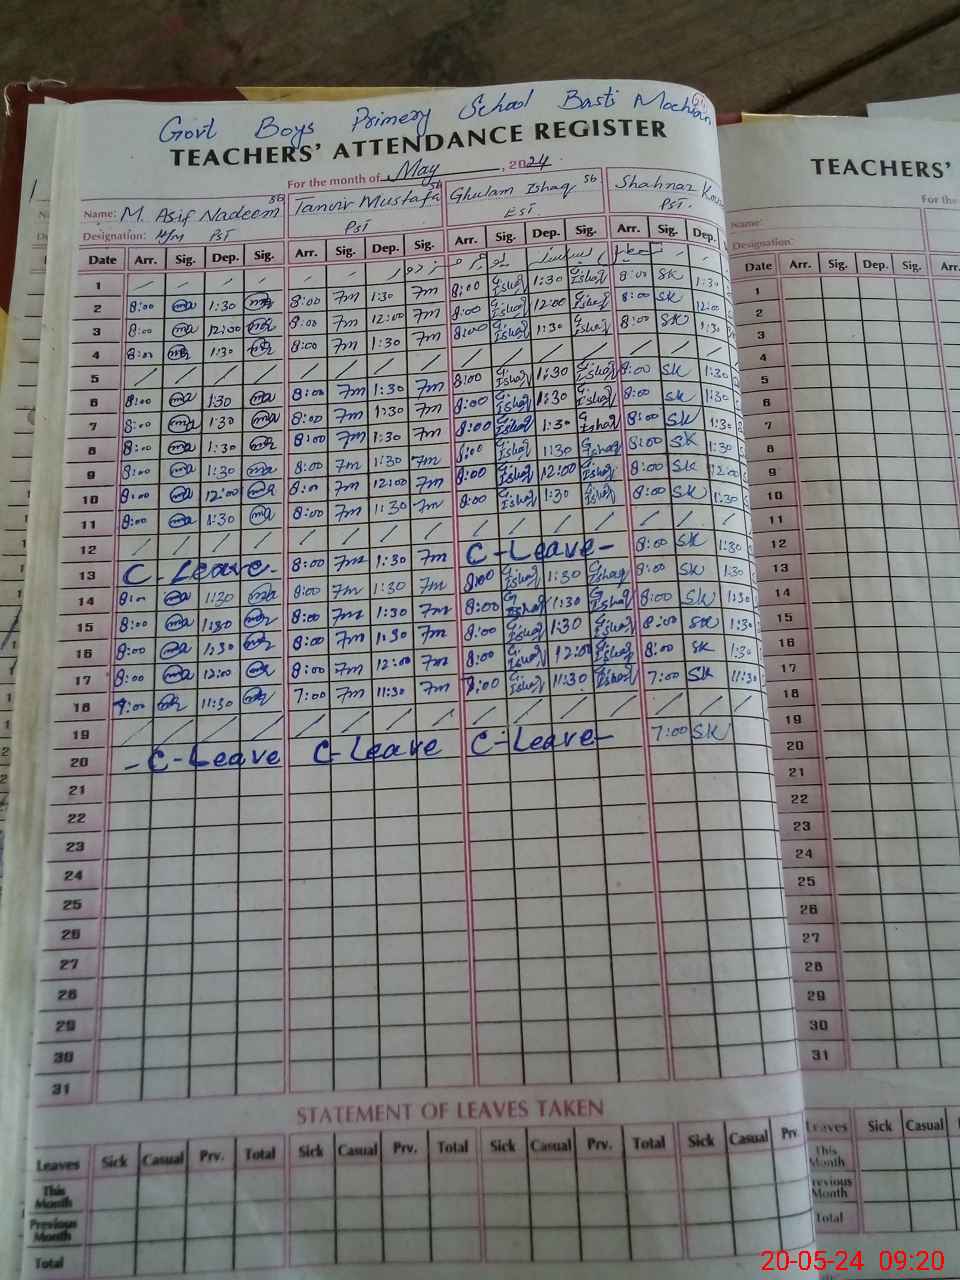 Govt Boys Primery School Basti Mochian
TEACHERS' ATTENDANCE REGISTER
For the month of May, 2024
Name: M. Asif Nadeem Sb Tanvir Mustafa Sb Ghulam Ishaq Sb Shahnaz
Designation: PST PST EST PST.
Date Arr. Sig. Dep. Sig. Arr. Sig. Dep. Sig. Arr. Sig. Dep. Sig. Arr. Sig. Dep.
1
2 8:00 ma 1:30 ma 8:00 7m 1:30 7m 8:00 G.Ishaq 1:30 G.Ishaq 8:00 SK 1:30
3 8:00 ma 12:00 ma 8:00 7m 12:00 7m 8:00 G.Ishaq 12:00 G.Ishaq 8:00 SK 12:00
4 8:00 ma 1:30 ma 8:00 7m 1:30 7m 8:00 G.Ishaq 1:30 G.Ishaq 8:00 SK 1:30
5
6 8:00 ma 1:30 ma 8:00 7m 1:30 7m 8:00 G.Ishaq 1:30 G.Ishaq 8:00 SK 1:30
7 8:00 ma 1:30 ma 8:00 7m 1:30 7m 8:00 G.Ishaq 1:30 G.Ishaq 8:00 SK 1:30
8 8:00 ma 1:30 ma 8:00 7m 1:30 7m 8:00 G.Ishaq 1:30 G.Ishaq 8:00 SK 1:30
9 8:00 ma 1:30 ma 8:00 7m 1:30 7m 8:00 G.Ishaq 1:30 G.Ishaq 8:00 SK 1:30
10 8:00 ma 12:00 ma 8:00 7m 12:00 7m 8:00 G.Ishaq 12:00 G.Ishaq 8:00 SK 12:00
11 8:00 ma 1:30 ma 8:00 7m 1:30 7m 8:00 G.Ishaq 1:30 G.Ishaq 8:00 SK 1:30
12
13 C-Leave- 8:00 7m 1:30 7m C-Leave- 8:00 SK 1:30
14 8:00 ma 1:30 ma 8:00 7m 1:30 7m 8:00 G.Ishaq 1:30 G.Ishaq 8:00 SK 1:30
15 8:00 ma 1:30 ma 8:00 7m 1:30 7m 8:00 G.Ishaq 1:30 G.Ishaq 8:00 SK 1:30
16 8:00 ma 1:30 ma 8:00 7m 1:30 7m 8:00 G.Ishaq 1:30 G.Ishaq 8:00 SK 1:30
17 8:00 ma 12:00 ma 8:00 7m 12:00 7m 8:00 G.Ishaq 12:00 G.Ishaq 8:00 SK 1:30
18 7:00 ma 11:30 ma 7:00 7m 11:30 7m 7:00 G.Ishaq 11:30 G.Ishaq 7:00 SK 11:30
19
20 -C-Leave C-Leave C-Leave- 7:00 SK
21
22
23
24
25
26
27
28
29
30
31
STATEMENT OF LEAVES TAKEN
Leaves Sick Casual Prv. Total Sick Casual Prv. Total Sick Casual Prv. Total Sick Casual Prv.
This Month
Previous Month
Total
TEACHERS'
For the
Name:
Designation:
Date Arr. Sig. Dep. Sig. Arr.
1
2
3
4
5
6
7
8
9
10
11
12
13
14
15
16
17
18
19
20
21
22
23
24
25
26
27
28
29
30
31
Leaves Sick Casual
This Month
Previous Month
Total
20-05-24 09:20